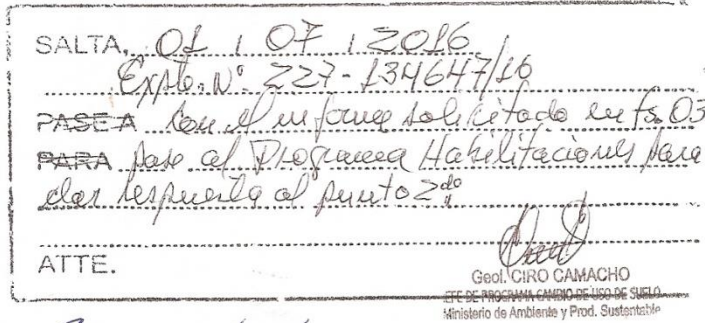 SALTA, 01 / 07 / 2016
Expte. Nº 227-134647/16
PASE A Con el informe solicitado en fs. 03
PARA pase al Programa Habilitaciones para
dar respuesta al punto 2do
ATTE.
Geol. CIRO CAMACHO
JEFE DE PROGRAMA CAMBIO DE USO DE SUELO
Ministerio de Ambiente y Prod. Sustentable